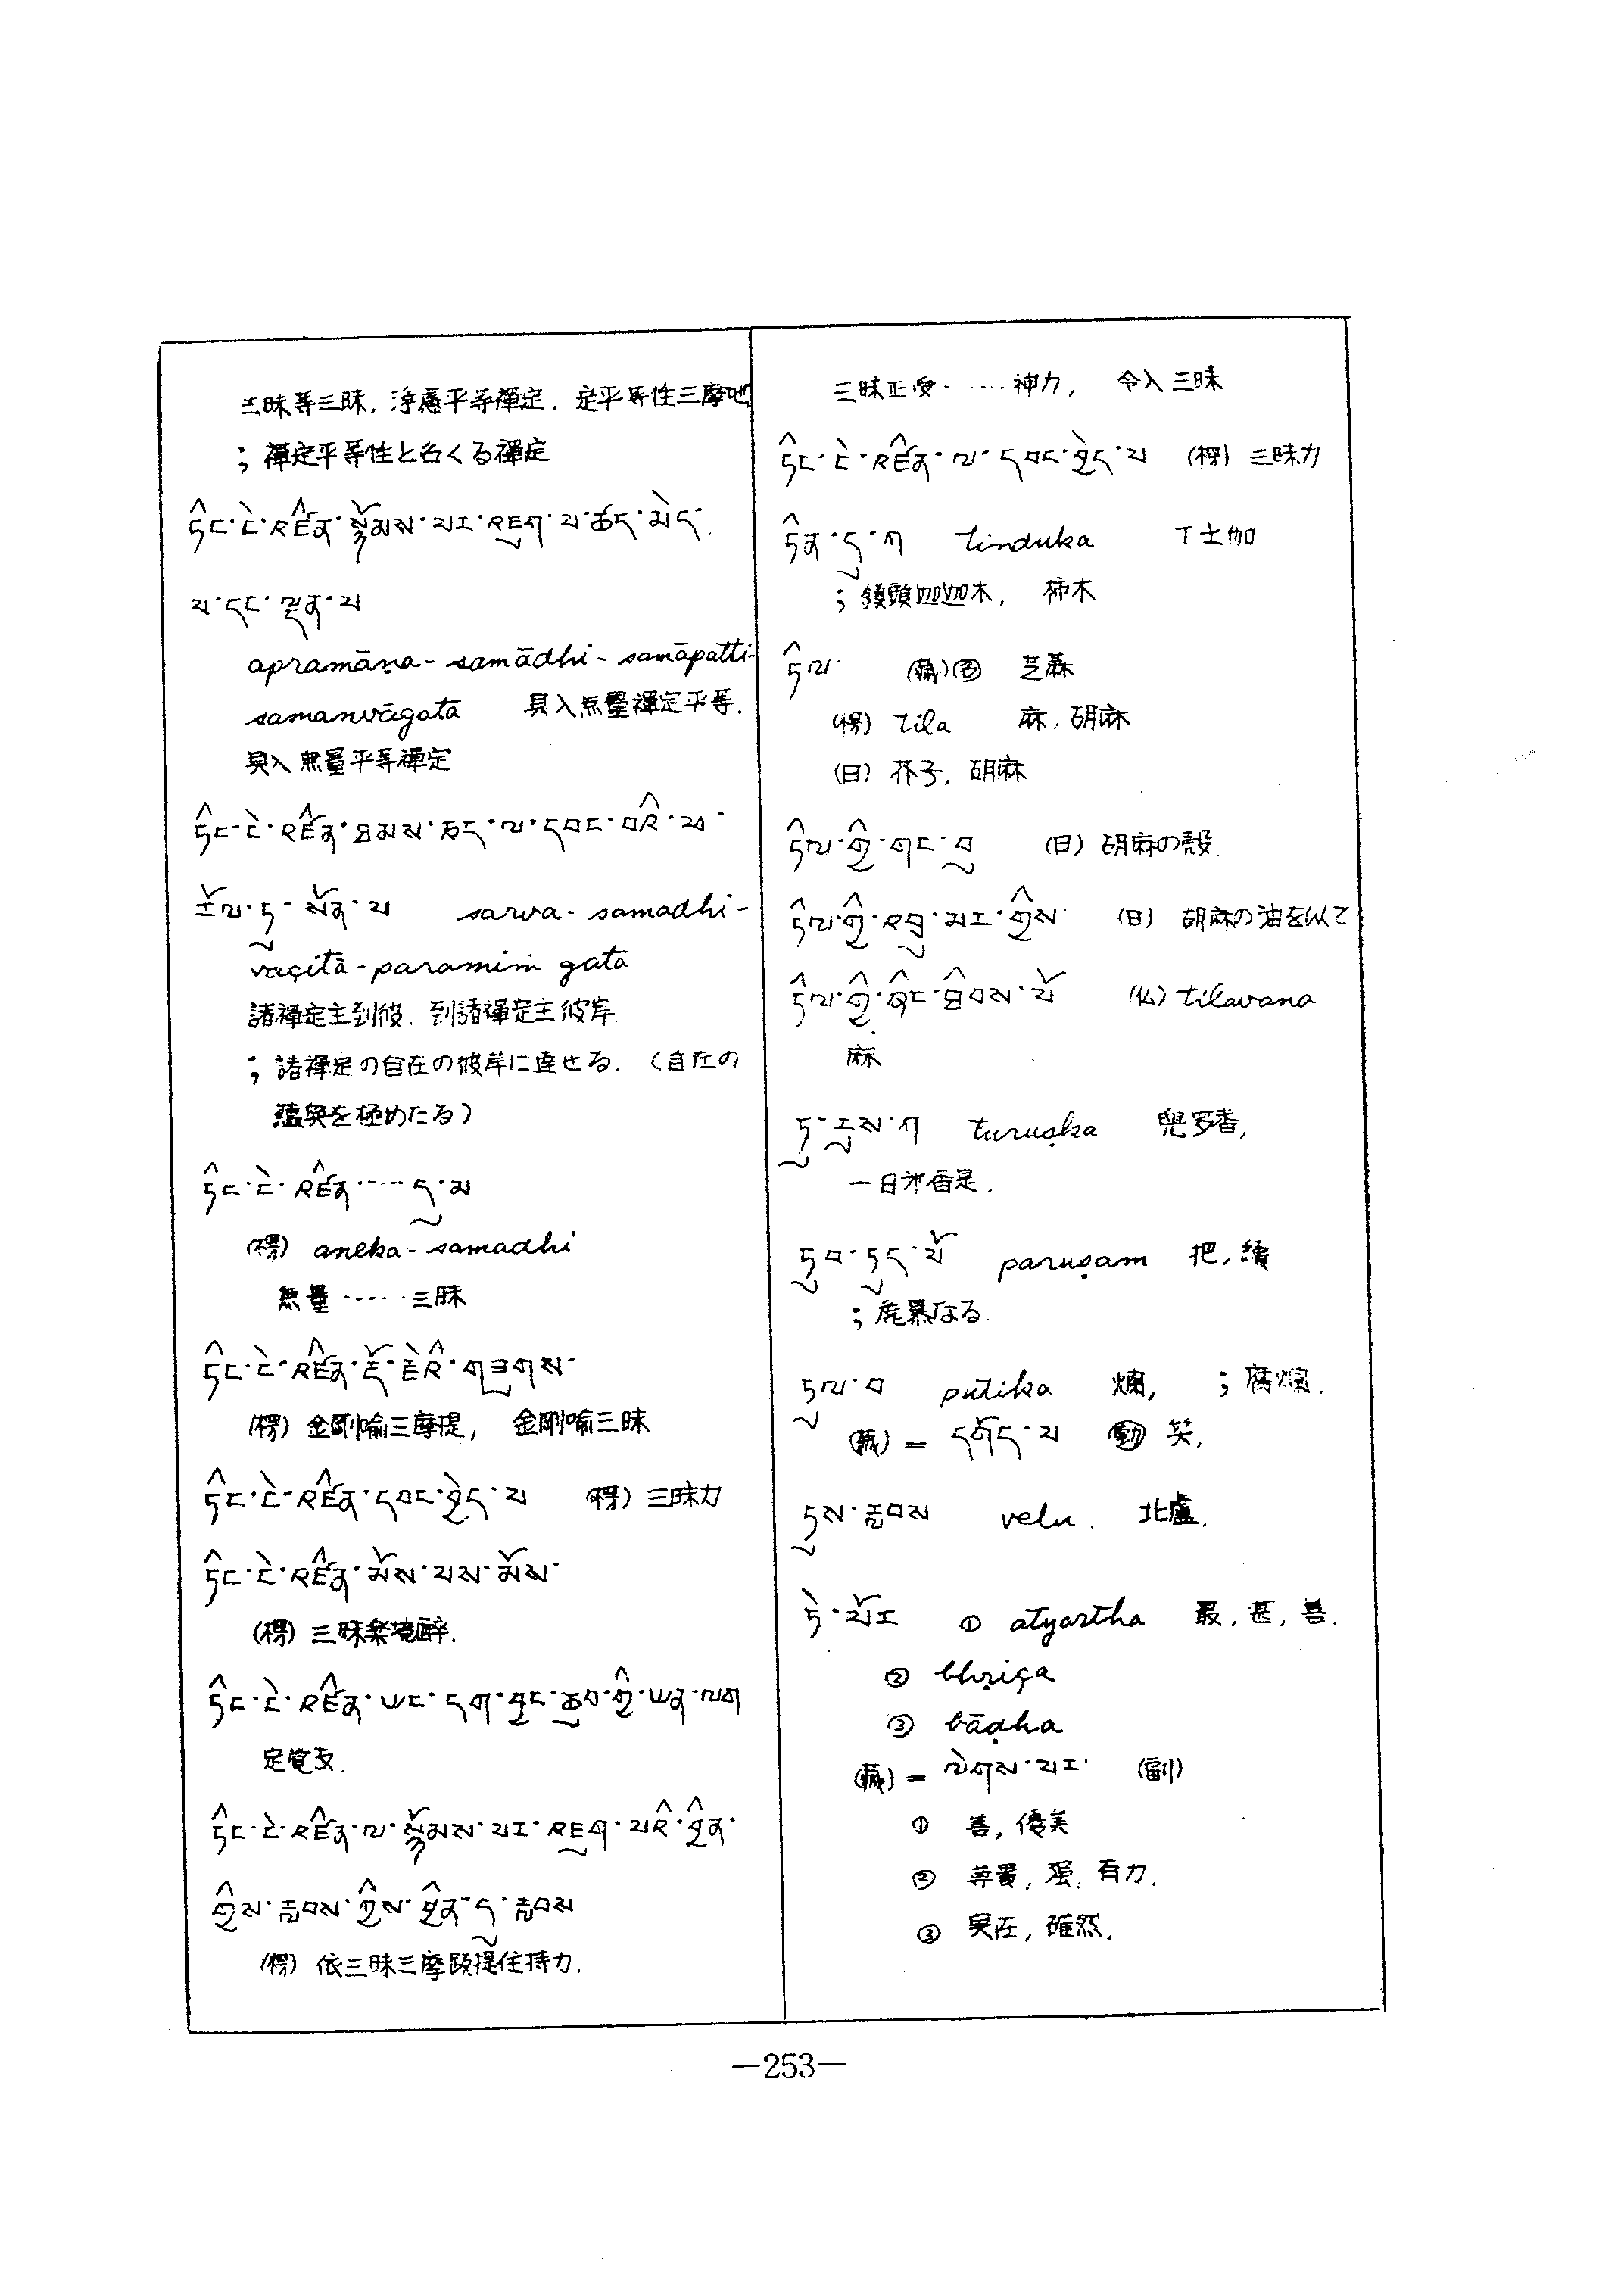 三昧等三昧, 浄慮平等禪定, 定平等性三摩地
; 禪定平等性と名くる禪定
ཏིང་ངེ་འཛིན་སྙོམས་པར་འཇུག་པ་ཚད་མེད་
པ་དང་ལྡན་པ
apramāṇa-samādhi-samāpatti-
samanvāgata 具入無量禪定平等.
具入無量平等禪定
ཏིང་ངེ་འཛིན་ཐམས་ཅད་ལ་དབང་བའི་ཕ་
རོལ་ཏུ་སོན་པ sarva-samadhi-
vaçitā-paramiṁ gata
諸禪定主到彼. 到諸禪定主彼岸
; 諸禪定の自在の彼岸に達せる. (自在の
蘊奥を極めたる)
ཏིང་ངེ་འཛིན་····དུ་མ
(楞) aneka-samadhi
無量·····三昧
ཏིང་ངེ་འཛིན་རྡོ་རྗེའི་གཟུགས་
(楞) 金剛喻三摩提, 金剛喻三昧
ཏིང་ངེ་འཛིན་དབང་བྱེད་པ (楞) 三昧力
ཏིང་ངེ་འཛིན་མོས་པས་མོས་
(楞) 三昧楽境酔.
ཏིང་ངེ་འཛིན་ཡང་དག་བྱང་ཆུབ་ཀྱི་ཡན་ལག
定覚支.
ཏིང་ངེ་འཛིན་ལ་སྙོམས་པར་འཇུག་པའི་བྱིན་
གྱིས་རླབས་ཀྱིས་བྱིན་དུ་རླབས
(楞) 依三昧三摩跋提住持力.
三昧正受·····神力, 令入三昧
ཏིང་ངེ་འཛིན་ལ་དབང་བྱེད་པ (楞) 三昧力
ཏིན་དུ་ཀ tinduka 丁土伽
; 鎮頭迦迦木, 柿木
ཏིལ་ (藏) 芝蔴
(楞) tila 麻, 胡麻
(日) 芥子, 胡麻
ཏིལ་གྱི་གང་བུ (日) 胡麻の殼.
ཏིལ་གྱི་འབྲུ་མར་གྱིས་ (日) 胡麻の油を以て
ཏིལ་གྱི་ཞིང་ཐིབས་པོ (仏) tilavana
麻
ཏུ་རུས་ཀ turuṣka 兜罗香,
一日沐香是.
ཏུབ་ཏུད་པོ paruṣam 把, 續
; 麁暴なる.
ཏུལ་བ putika 爛, ; 腐爛.
(藏) = དགོད་པ 動 笑,
ཏུས་རླབས velu. 北盧.
ཏེ་པོར ① atyartha 最, 甚, 善.
② bhṛiça
③ bāḍha
(藏) = ལེགས་པར་ (副)
① 善, 優美
② 尊貴, 强, 有力.
③ 実在, 確然.
—253—